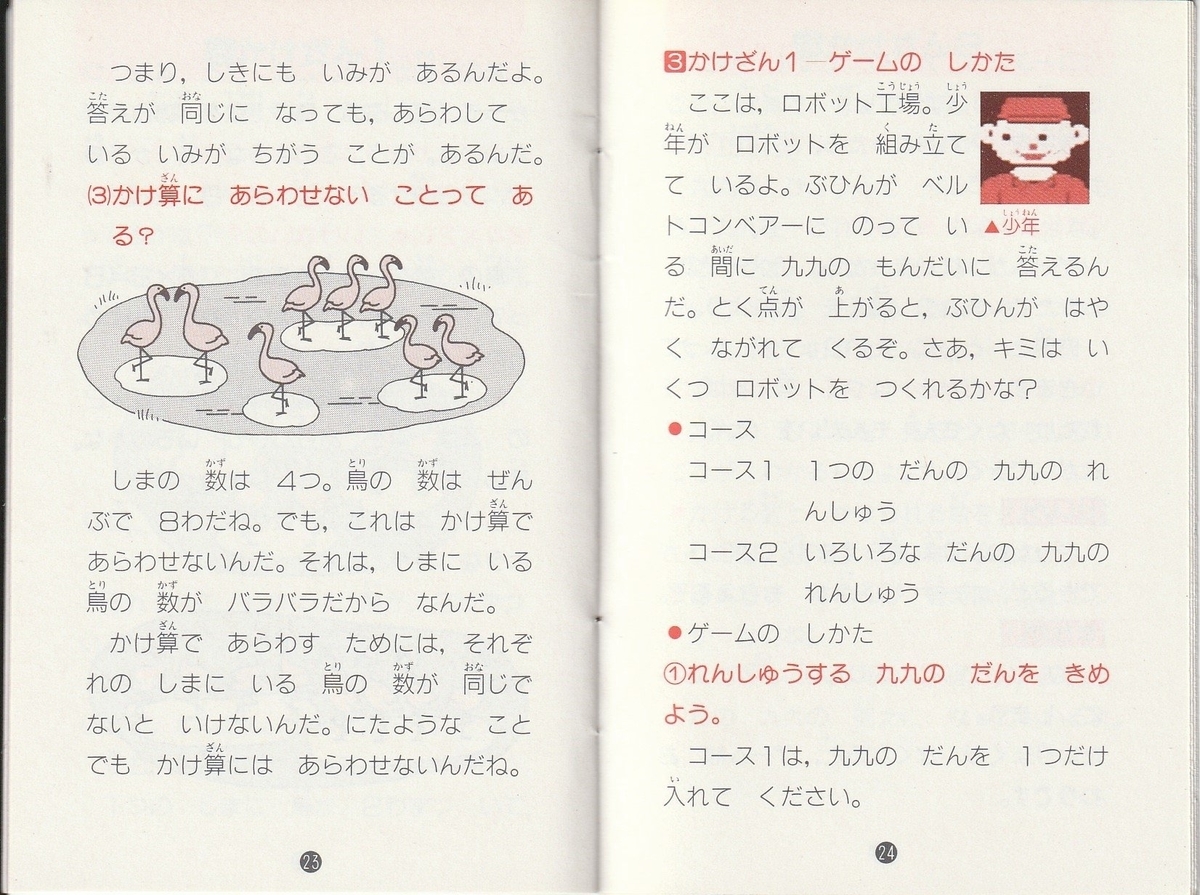 つまり，しきにも　いみが　あるんだよ。
答えが　同じに　なっても，あらわして
いる　いみが　ちがう　ことが　あるんだ。
⑶かけ算に　あらわせない　ことって　あ
る？
しまの　数は　4つ。鳥の　数は　ぜん
ぶで　8わだね。でも，これは　かけ算で
あらわせないんだ。それは，しまに　いる
鳥の　数が　バラバラだから　なんだ。
かけ算で　あらわす　ためには，それぞ
れの　しまに　いる　鳥の　数が　同じで
ないと　いけないんだ。にたような　こと
でも　かけ算には　あらわせないんだね。
23
3かけざん1―ゲームの　しかた
ここは，ロボット工場。少
年が　ロボットを　組み立て
て　いるよ。ぶひんが　ベル
トコンベアーに　のって　い
▲少年
る　間に　九九の　もんだいに　答えるん
だ。とく点が　上がると，ぶひんが　はや
く　ながれて　くるぞ。さあ，キミは　い
くつ　ロボットを　つくれるかな？
●コース
コース1　1つの　だんの　九九の　れ
んしゅう
コース2　いろいろな　だんの　九九の
れんしゅう
●ゲームの　しかた
①れんしゅうする　九九の　だんを　きめ
よう。
コース1は，九九の　だんを　1つだけ
入れて　ください。
24